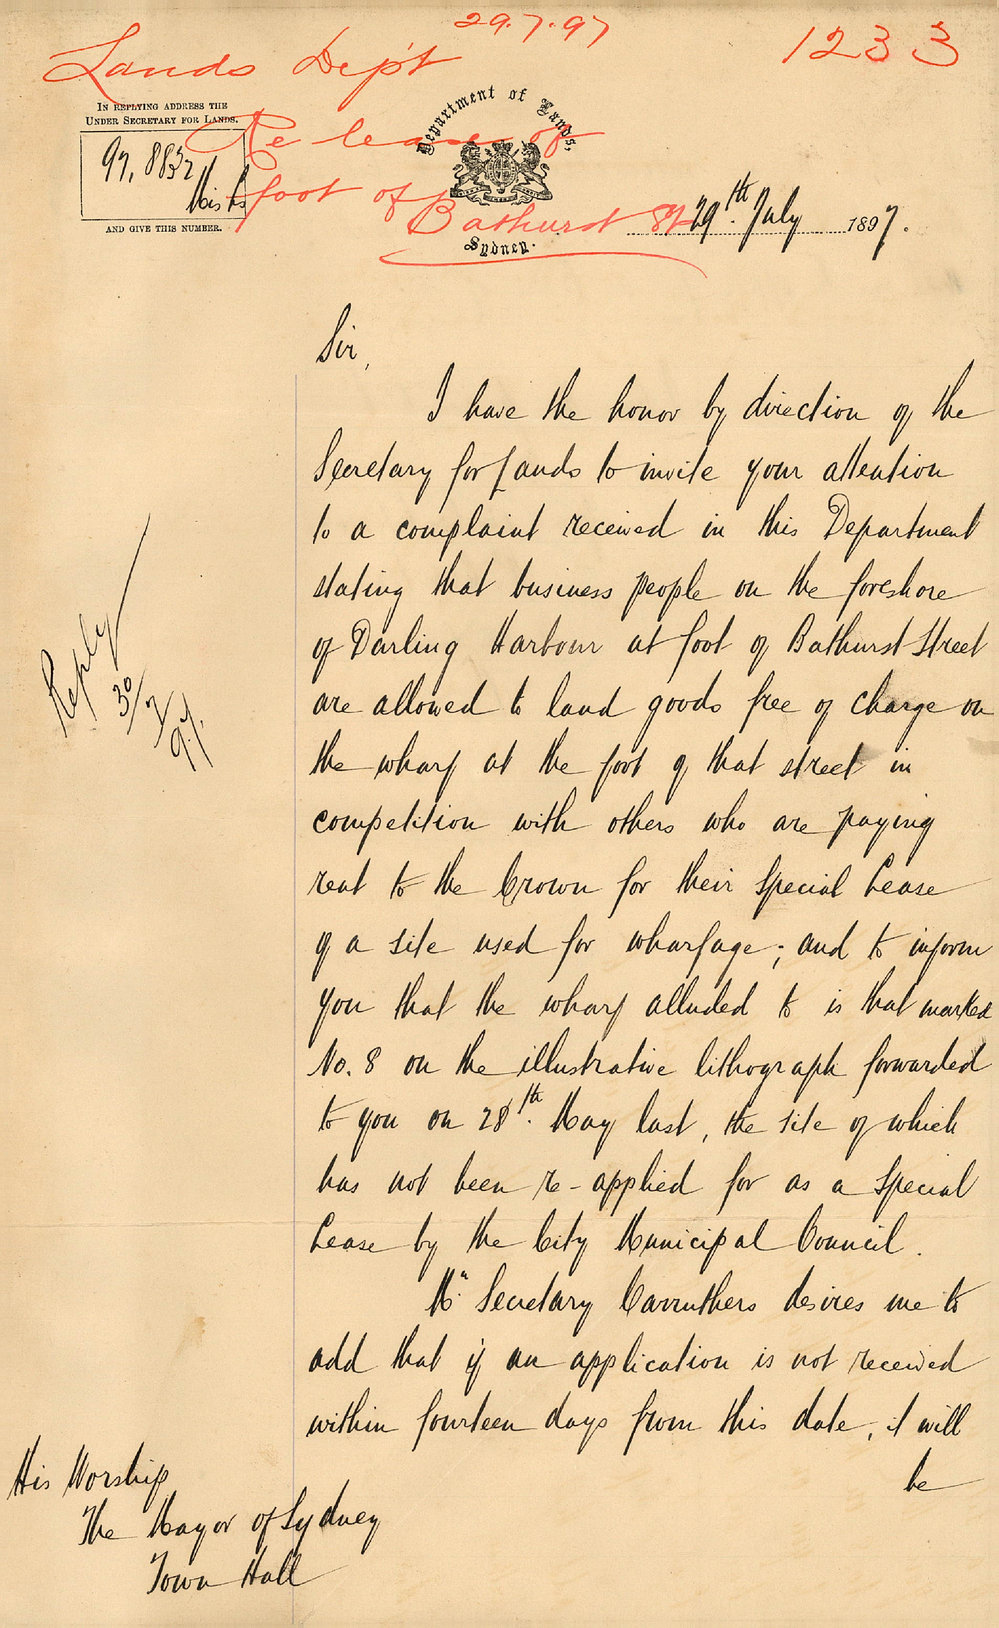 29.7.97
1233
Lands Dep't
Re lease of
foot of
Bathurst St
IN REPLYING ADDRESS THE
UNDER SECRETARY FOR LANDS.
97, 8832
Mis
AND GIVE THIS NUMBER.
Department of Lands,
Sydney.
29th. July 1897.
Sir,
I have the honor by direction of the
Secretary for Lands to invite your attention
to a complaint received in this Department
stating that business people on the foreshore
of Darling Harbour at foot of Bathurst Street
are allowed to land goods free of charge on
the wharf at the foot of that street in
competition with others who are paying
rent to the Crown for their Special Lease
of a site used for wharfage; and to inform
you that the wharf alluded to is that marked
No. 8 on the illustrative lithograph forwarded
to you on 28th. May last, the site of which
has not been re-applied for as a Special
Lease by the City Municipal Council.
Mr. Secretary Carruthers desires me to
add that if an application is not received
within fourteen days from this date, it will
be
Reply
30/7/97.
His Worship
The Mayor of Sydney
Town Hall